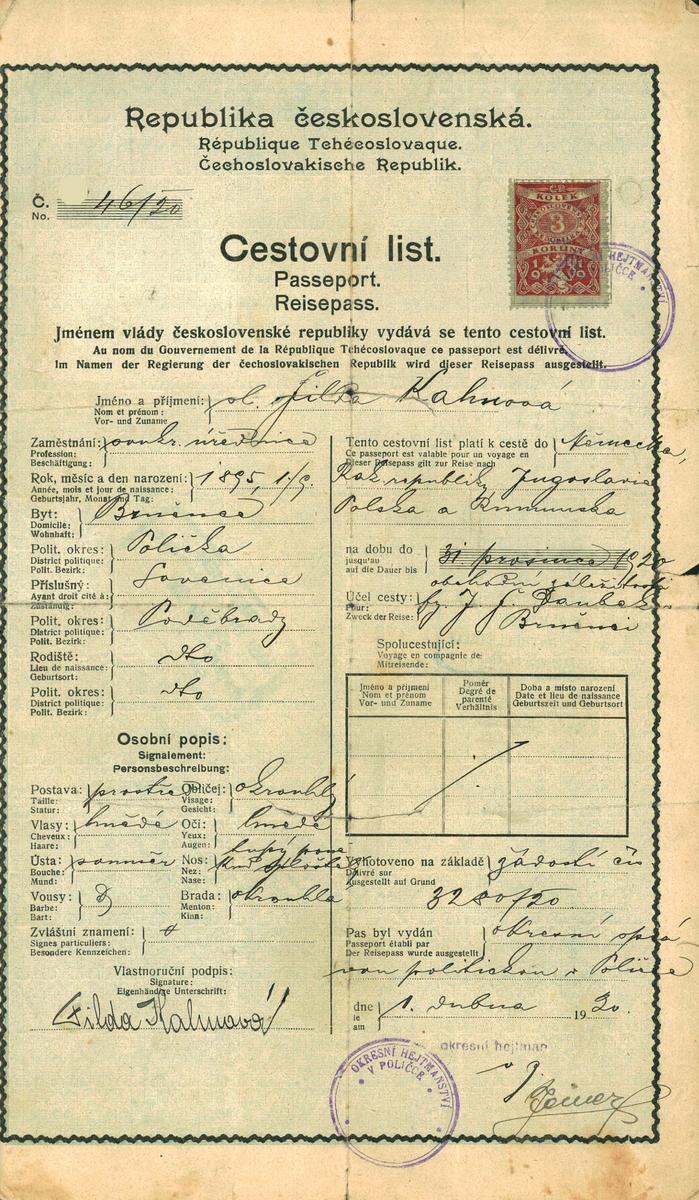 Republika československá.
République Tchécoslovaque.
Čechoslovakische Republik.
Č. 46/20
No.
KOLEK
3
KORUNY
1919
Cestovní list.
Passeport.
Reisepass.
OKRESNÍ HEJTMANSTVÍ
V POLIČCE
Jménem vlády československé republiky vydává se tento cestovní list.
Au nom du Gouvernement de la République Tchécoslovaque ce passeport est délivré.
Im Namen der Regierung der čechoslovakischen Republik wird dieser Reisepass ausgestellt.
Jméno a příjmení: sl. Jilda Kahnová
Nom et prénom:
Vor- und Zuname
Zaměstnání: soukr. úřednice
Profession:
Beschäftigung:
Rok, měsíc a den narození: 1895, 1./9.
Année, mois et jour de naissance:
Geburtsjahr, Monat und Tag:
Byt: Brněnec
Domicile:
Wohnhaft:
Polit. okres: Polička
District politique:
Polit. Bezirk:
Příslušný:
Ayant droit cité à:
Zuständig:
Polit. okres: Poděbrady
District politique:
Polit. Bezirk:
Rodiště: dto
Lieu de naissance:
Geburtsort:
Polit. okres: dto
District politique:
Polit. Bezirk:
Osobní popis:
Signalement:
Personsbeschreibung:
Postava: prostřed Obličej: okrouhlý
Taille: Visage:
Statur: Gesicht:
Vlasy: hnědé Oči: hnědé
Cheveux: Yeux:
Haare: Augen:
Ústa: souměr Nos: tupý
Bouche: Nez:
Mund: Nase:
Vousy: Brada: okrouhla
Barbe: Menton:
Bart: Kinn:
Zvláštní znamení:
Signes particuliers:
Besondere Kennzeichen:
Vlastnoruční podpis:
Signature:
Eigenhändige Unterschrift:
Jilda Kahnová
Tento cestovní list platí k cestě do Německa,
Ce passeport est valable pour un voyage en
Dieser Reisepass gilt zur Reise nach
Rak. republiky, Jugoslavie
Polska a Rumunska
na dobu do 31 prosince 1920
jusqu'au
auf die Dauer bis
obchodní záležitosti
Účel cesty: fy. J. E. Daubek
Pour:
Zweck der Reise:
Brněnci
Spolucestující:
Voyage en compagnie de:
Mitreisende:
Jméno a příjmení Poměr Doba a místo narození
Nom et prénom Degré de parenté Date et lieu de naissance
Vor- und Zuname Verhältnis Geburtszeit und Geburtsort
Vyhotoveno na základě žádosti čís
Délivré sur
Ausgestellt auf Grund
3280/20
Pas byl vydán okresní sprá
Passeport établi par
Der Reisepass wurde ausgestellt
vou politickou v Poličce
dne 1. dubna 1920.
le
am
okresní hejtman
OKRESNÍ HEJTMANSTVÍ
V POLIČCE